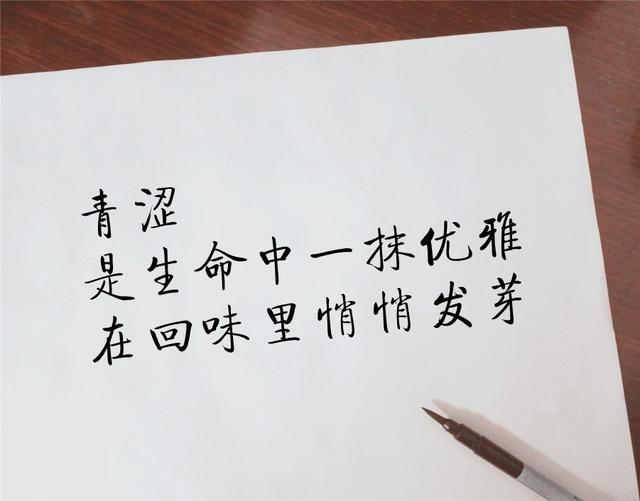 青涩
是生命中一抹优雅
在回味里悄悄发芽